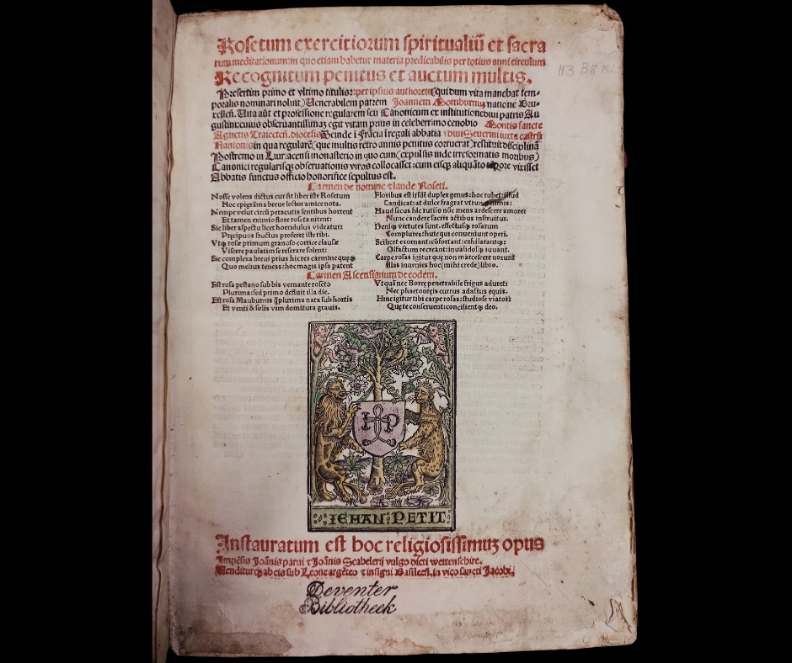 Rosetum exercitiorum spiritualiū et sacra
rum meditationum: in quo etiam habetur materia predicabilis per totius anni circulum
Recognitum penitus et auctum multis.
Presertim primo et vltimo titulis: per ipsius authorem (qui dum vita manebat tem-
poralis nominari noluit) Uenerabilem patrem Joannem Momburnum natione Bru-
xellen̄. Uita aūt et professione regularem seu Canonicum ex institutione diui patris Au
gustini: cuius obseruantissimā egit vitam prius in celeberrimo cenobio Montis sancte
Agnetis Traiecten̄. diocesis: Deinde i Frācia i regali abbatia diui Seuerini iuxta castrū
Nantonis: in qua regularē (que multis retro annis penitus corruerat) restituit disciplinā
Postremo in Liuriacensi monasterio in quo cum (expulsis inde irreformatis moribus)
Canonici regularisq; obseruationis viros collocasset: cum eisq; aliquādiu vixisset
Abbatis functus officio honorifice sepultus est.
Carmen de nomine ⁊ laude Roseti.
Nosse volens dictus cur sit liber iste Rosetum
Hoc epigrāma breue lector amice nota.
Nempe velut circū peracutis sentibus horrent
Et tamen eximio flore roseta nitent:
Sic liber aspectu licet horridulus videatur:
Precipuos fructus proferet iste tibi.
Vtq; rose primum granoso cortice clause
Viscere paulatim se reserare solent:
Sic complexa breui prius hic res carmine quaq;
Quo melius teneas: hoc magis ipsa patent
Floribus est ipsis duplex genus: hoc rubet: illud
Candicat: at dulce fragrat vtrumq;
Haud secus hic rutilo nūc mens ardescere amore
Nunc candere sacris actibus instruitur.
Deniq; virtutes sunt: effectusq; rosarum
Complures: huic qui conueniunt operi.
Scilicet exornant: cōfortant: exhilarantq;:
Olfactum recreant: inualidosq; iuuant.
Carpe rosas igitur qui non marcescere norunt
Illas inuenies hoc (mihi crede) libro.
Carmen Ascensianum de eodem.
Est rosa pestano sub bis vernante roseto
Plurima: sed primo defluit illa die.
Est rosa Mauburnis Iplurima nata sub hortis
Et venti & solis vim domitura grauis.
Vt quā nec Boree penetrabile frigus aduret:
Nec phaetonteis currus adactus equis.
Hinc igitur tibi carpe rosas: studiose viator:
Que te conseruent: concilientq; deo.
IP
IEHAN PETIT
Instauratum est hoc religiosissimuz opus
Impēsis Joānis parui ⁊ Joānis Scabelerij vulgo dicti wettenschire.
Venditurq; ab eis sub Leone argēteo ⁊ insigni Basileen̄. in vico sancti Jacobi.
Deventer
Bibliotheek